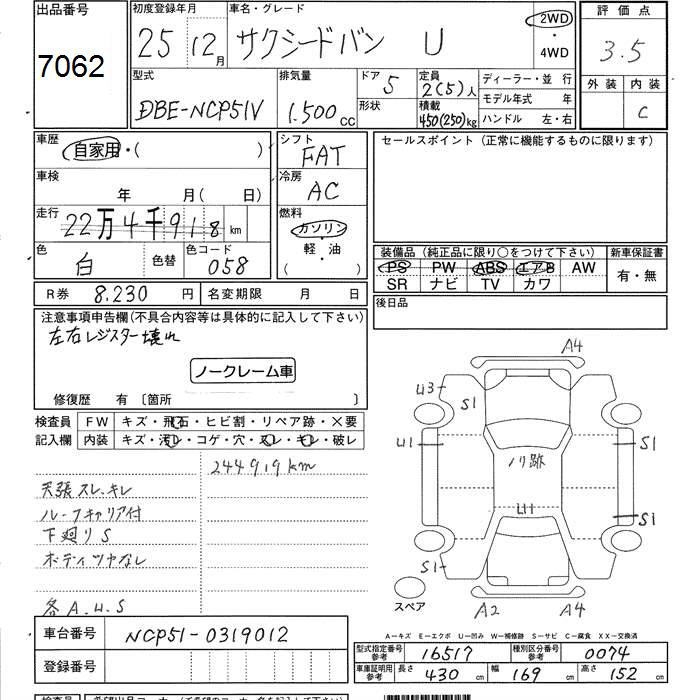 出品番号 初度登録年月 車名・グレード 評価点
7062 25 12月 サクシードバン U 2WD・4WD 3.5
型式 排気量 ドア 5 定員 2(5)人 ディーラー・並行 外装 内装
DBE-NCP51V 1.500cc 形状 積載 450(250)kg モデル年式 年 C
ハンドル 左・右
車歴 自家用・( ) シフト FAT セールスポイント(正常に機能するものに限ります)
車検 年 月(日) 冷房 AC
走行 22万4千918km 燃料 ガソリン
色 白 色替 色コード 058 軽・油 ( )
装備品(純正品に限り○をつけて下さい) 新車保証書
PS PW ABS エアB AW 有・無
SR ナビ TV カワ
R券 8.230円 名変期限 月 日 後日品
注意事項申告欄(不具合内容等は具体的に記入して下さい)
左右レジスター壊れ
ノークレーム車
修復歴 有〔箇所 〕
検査員 FW キズ・飛石・ヒビ割・リペア跡・X要
記入欄 内装 キズ・汚レ・コゲ・穴・スレ・キレ・破レ
244919km
天張スレ、キレ
ルーフキャリア付
下廻りS
ボディツヤなし
各A.U.S
A4
U3 S1
U1 S1
ノリ跡
U1
S1
S1
スペア A2 A4
A-キズ E-エクボ U-凹み W-補修跡 S-サビ C-腐食 XX-交換済
車台番号 NCP51-0319012
登録番号
型式指定番号参考 16517 種別区分番号参考 0074
車庫証明用参考 長さ 430cm 幅 169cm 高さ 152cm